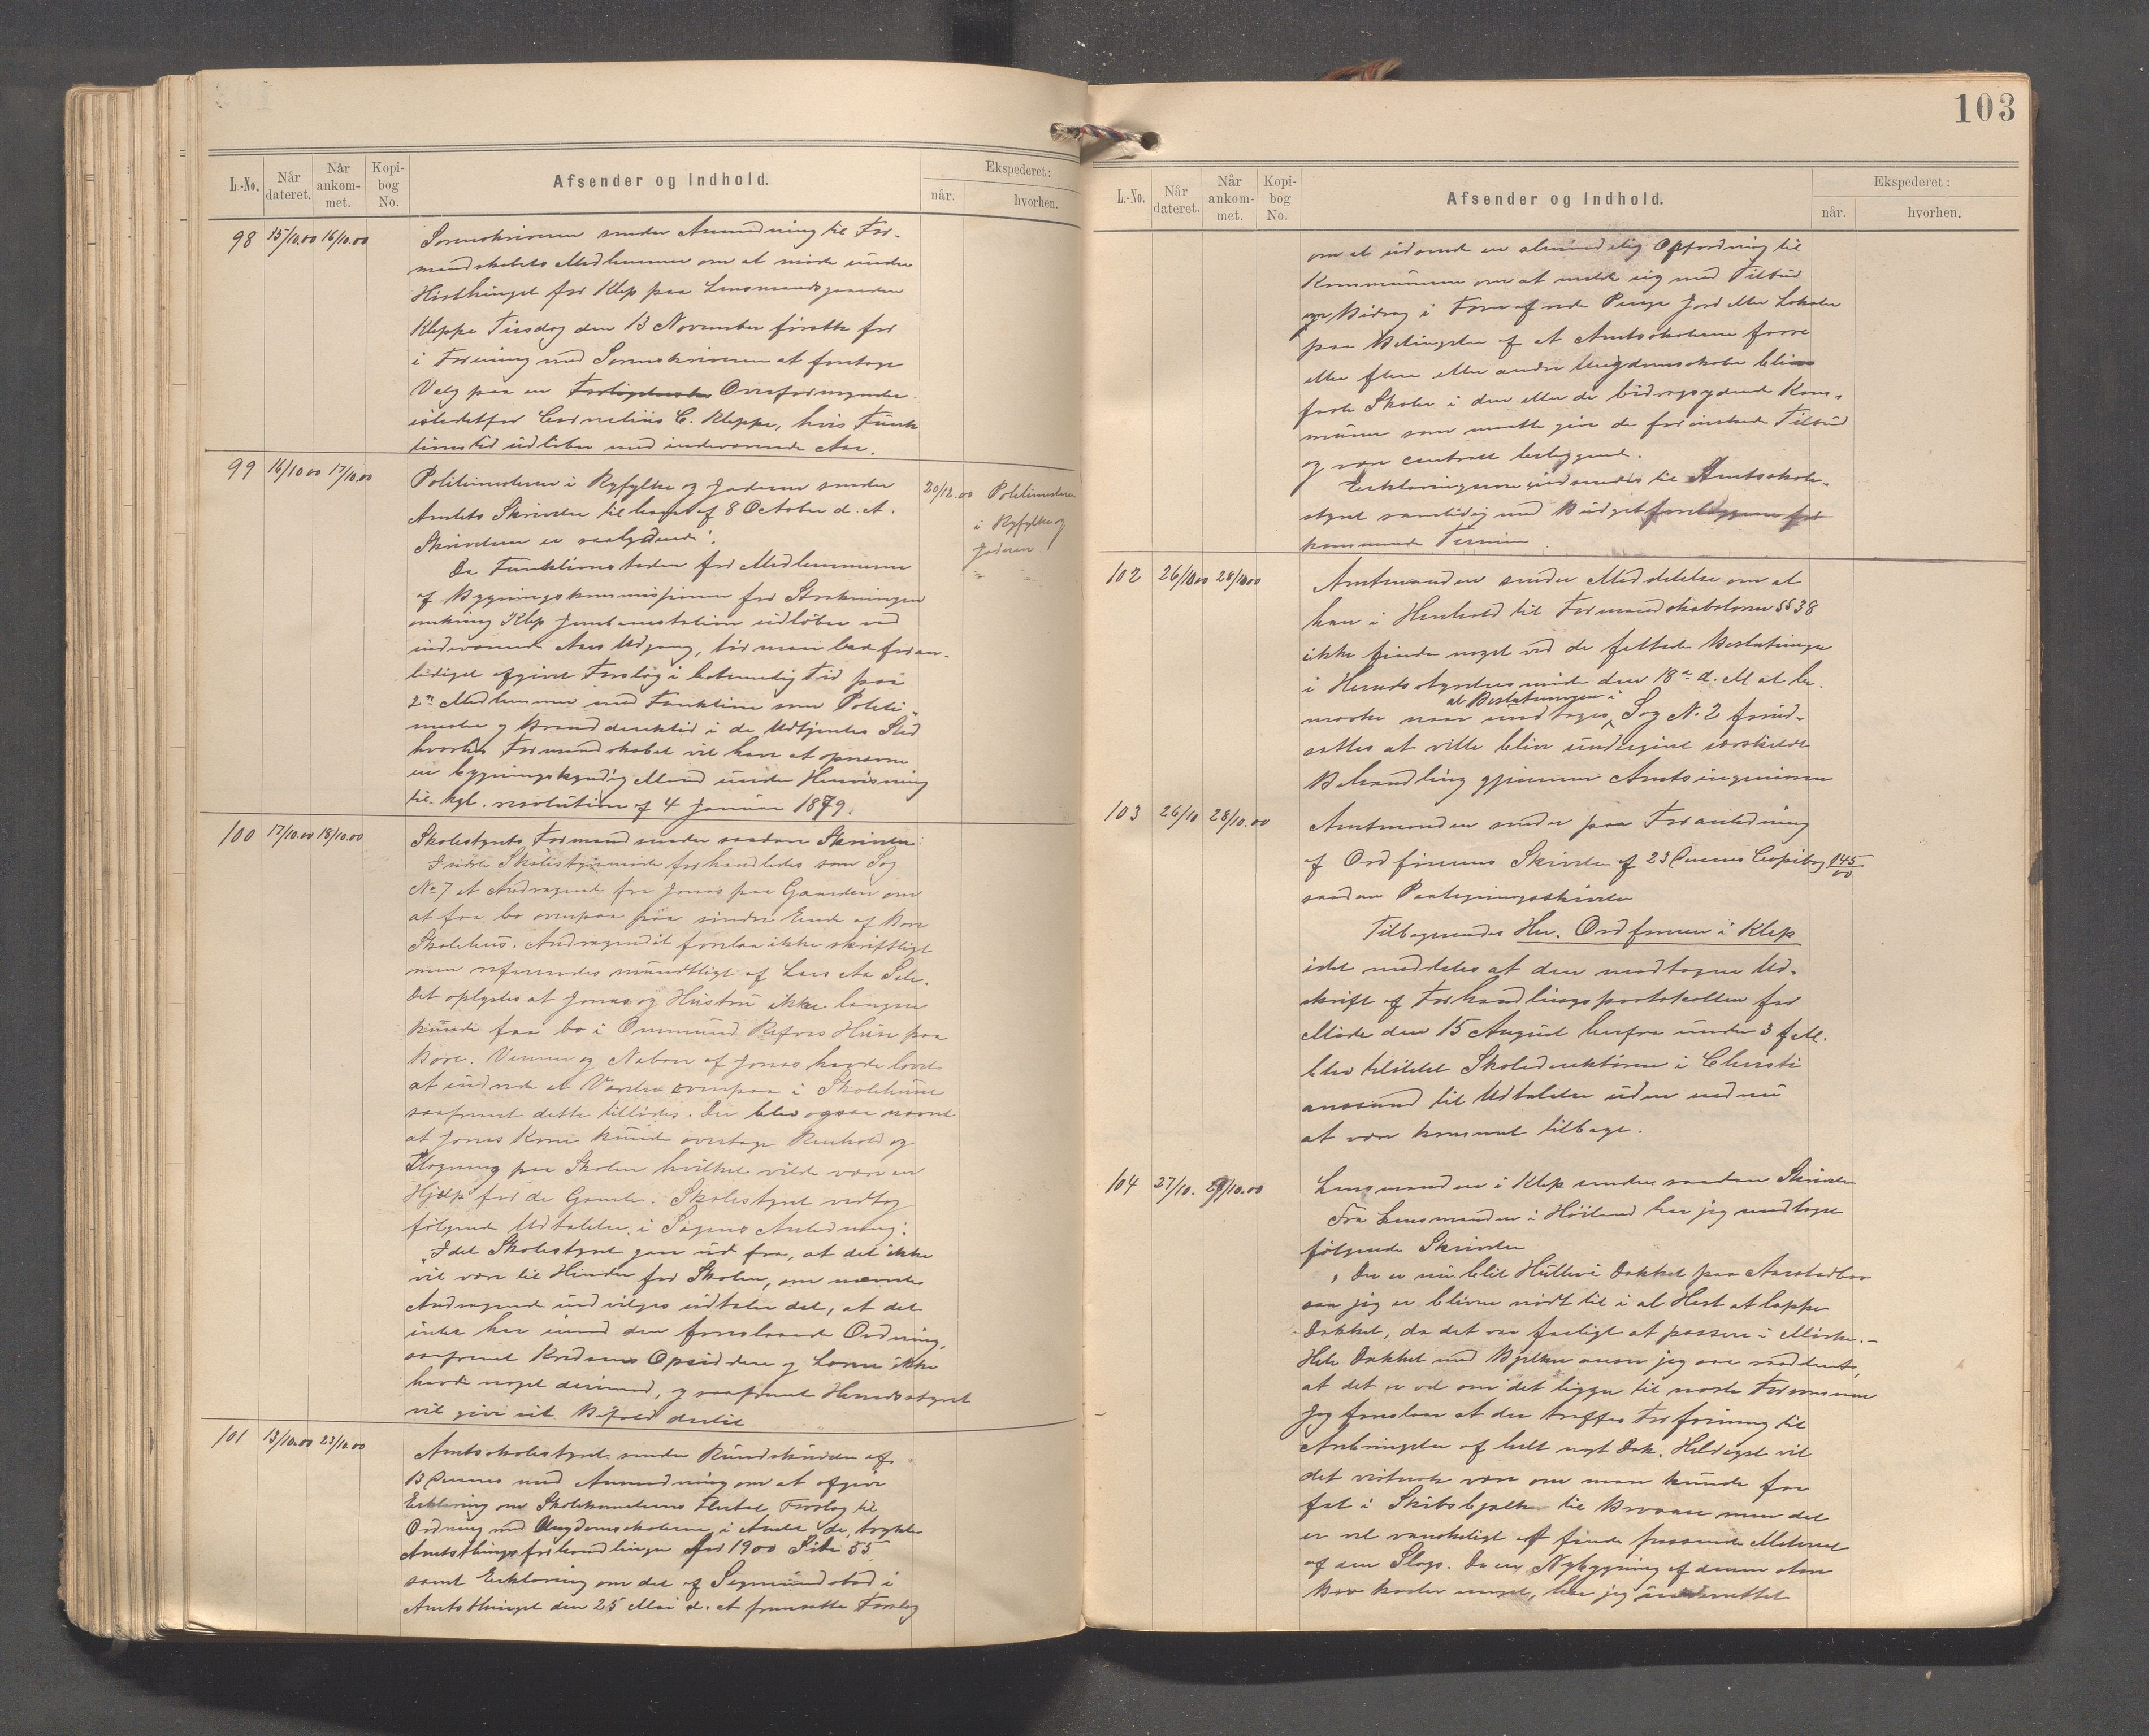 L.-No. Når dateret. Når ankommet. Kopibog No. Afsender og Indhold. Ekspederet: når. hvorhen.
98 15/10.00 16/10.00 Sorenskriveren sender Anmodning til For-
mandskabets Medlemmer om at møde under
Høstthinget for Klep paa Lensmandsgaarden
Kleppe Tirsdag den 13 November førstk for
i Forening med Sorenskriveren at foretage
Valg paa en Overformynder
istedetfor Cornelius C. Kleppe, hvis Funk
tionstid udløber med indeværende Aar.
99 16/10 00 17/10.00 Politimesteren i Ryfylke og Jæderen sender 20/12.00 Politimesteren
Amtets Skrivelse til ham af 8 October d. A. i Ryfylke og
Skrivelsen er saalydende: Jæderen
Da Funktionstiden for Medlemmerne
af Bygningskommissionen for Strækningen
omkring Klep Jernbanestation udløber ved
indeværende Aars Udgang, tør man bede foran-
lediget afgivet Forslag i betimelig Tid paa
2de Medlemmer med Funktion som Politi-
mester og Branddirektør i de Udtjentes Sted
hvorhos Formandskabet vil have at opnævne
en bygningskyndig Mand under Henvisning
til kgl. resolution af 4 Januar 1879.
100 17/10.00 18/10.00 Skolestyrets Formand sender saadan Skrivelse:
I sidste Skolestyremøde forhandledes som Sag
No 7 et Andragende fra Jonas paa Gaarden om
at faa bo ovenpaa paa søndre Ende af Bore
Skolehus. Andragendet forelaa ikke skriftligt
men refereredes mundtligt af Lars Aa Sele.
Det oplystes at Jonas og Hustru ikke længere
kunde faa bo i Ommund Refsnes Huse paa
Bore. Venner og Naboer af Jonas havde lovet
at indrede et Værelse ovenpaa i Skolehuset
saafremt dette tillodes. Der blev ogsaa nævnt
at Jonas Kone kunde overtage Renhold og
Ilægning paa Skolen hvilket vilde være en
Hjælp for de Gamle. Skolestyret vedtog
følgende Udtalelse i Sagens Anledning:
"Idet Skolestyret gaar ud fra, at det ikke
vil være til Hinder for Skolen, om nævnte
Andragende indvilges udtaler det, at det
intet har imod den foreslaaede Ordning,
saafremt Kredsens Opsidere og Lærer ikke
havde noget derimod, og saafremt Herredsstyret
vil give sit Bifald dertil
101 13/10.00 23/10.00 Amtsskolestyret sender Rundskrivelse af
13 Dennes med Anmodning om at afgive
Erklæring om Skolekomiteens Flertal Forslag til
Ordning med Ungdomsskolerne i Amtet, de trykte
Amtsthingsforhandlinger for 1900 Side 55
samt Erklæring om det af Sigmundstad i
Amtsthinget den 25 Mai d. A fremsatte Forslag
103
L.-No. Når dateret. Når ankommet. Kopibog No. Afsender og Indhold. Ekspederet: når. hvorhen.
om at udsende en almindelig Opfordring til
Kommunerne om at melde sig med Tilbud
om Bidrag i Form af rede Penge Jord eller Lokaler
paa Betingelse af at Amtsskolerne færre
eller flere eller andre Ungdomsskoler blive
faste Skoler i den eller de bidragsydende Kom-
muner som maatte give de for ønskede Tilbud
og være centralt beliggende.
Erklæringerne indsendes til Amtsskole-
styret samtidig med Budget
kommende Termin.
102 26/10.00 28/10.00 Amtmanden sender Meddelelse om at
han i Henhold til Formandskabsloven §§ 38
ikke finder noget ved de fattede Beslutninger
i Herredsstyrelsesmøde den 18de d. M at be-
mærke naar undtages at Beslutningen i Sag N. 2 forud-
sættes at ville blive undergivet særskilt
Behandling gjennem Amtsingeniøren
103 26/10 28/10.00 Amtmanden sender paa Foranledning
af Ordførerens Skrivelse af 23 Dennes Copibog 945/00
saadan Paategningsskrivelse
Tilbagesendes Hr. Ordføreren i Klep
idet meddeles at den modtagne Ud-
skrift af Forhandlingsprotokollen for
Møde den 15 August herfra under 3 f. M.
blev tilstillet Skoledirektøren i Christi
anssand til Udtalelse uden endnu
at være kommet tilbage.
104 27/10. 29/10.00 Lensmanden i Klep sender saadan Skrivelse
Fra Lensmanden i Høiland har jeg modtaget
følgende Skrivelse
"Der er nu blit Huller i Dækket paa Aarstadbro
saa jeg er bleven nødt til i al Hast at lappe
Dækket, da det var farligt at passere i Mørke.-
Hele Dækket med Bjelker anser jeg saa raaddent,
at det er vel om det ligger til næste Formmer
Jeg foreslaar at der træffes Forføining til
Anbringelse af helt nyt Dæk. Heldigst vil
det vistnok være om man kunde faa
fat i Skibsbjælker til Brovare men det
er vel vanskeligt at finde passende Materiel
af den Slags. Da en Nybygning af denne store
Bro koster meget, har jeg underrettet